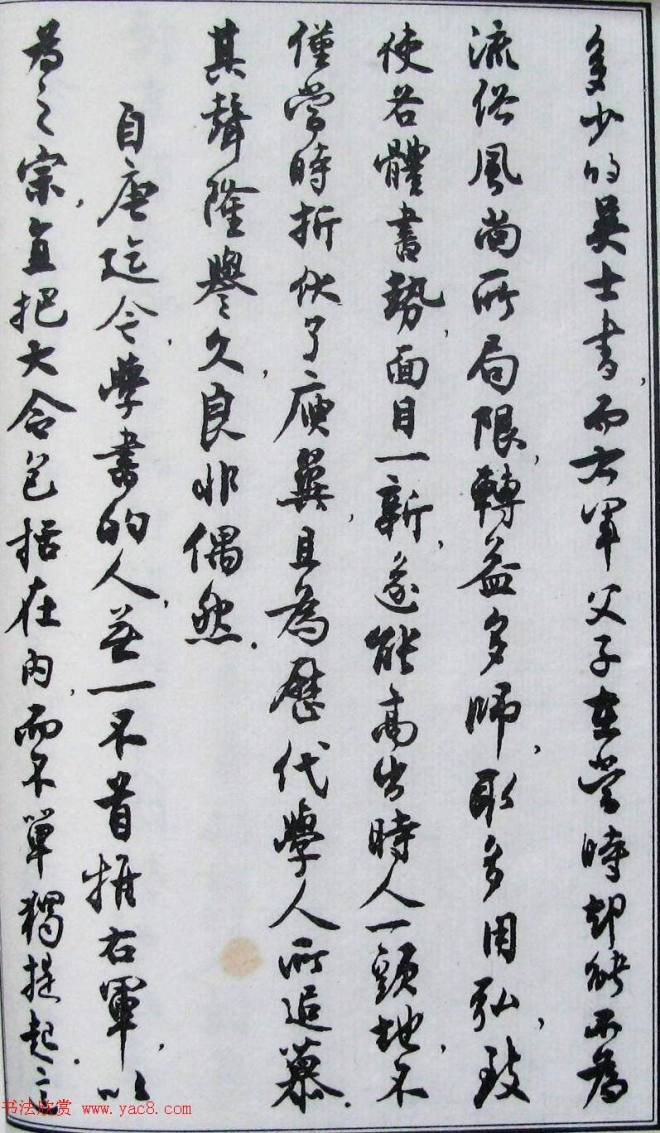 多少的英士書,而右軍父子在當時却能不為
流俗風尚所局限,轉益多師,取多用弘,致
使各體書勢,面目一新,遂能高出時人一頭地,不
僅當時折伏了庾翼,且為歷代學人所追慕.
其聲隆譽久,良非偶然.
自唐迄今,學書的人,無一不首推右軍,以
為之宗,直把大令包括在內,而不單獨提起.二王
书法欣赏 www.yac8.com